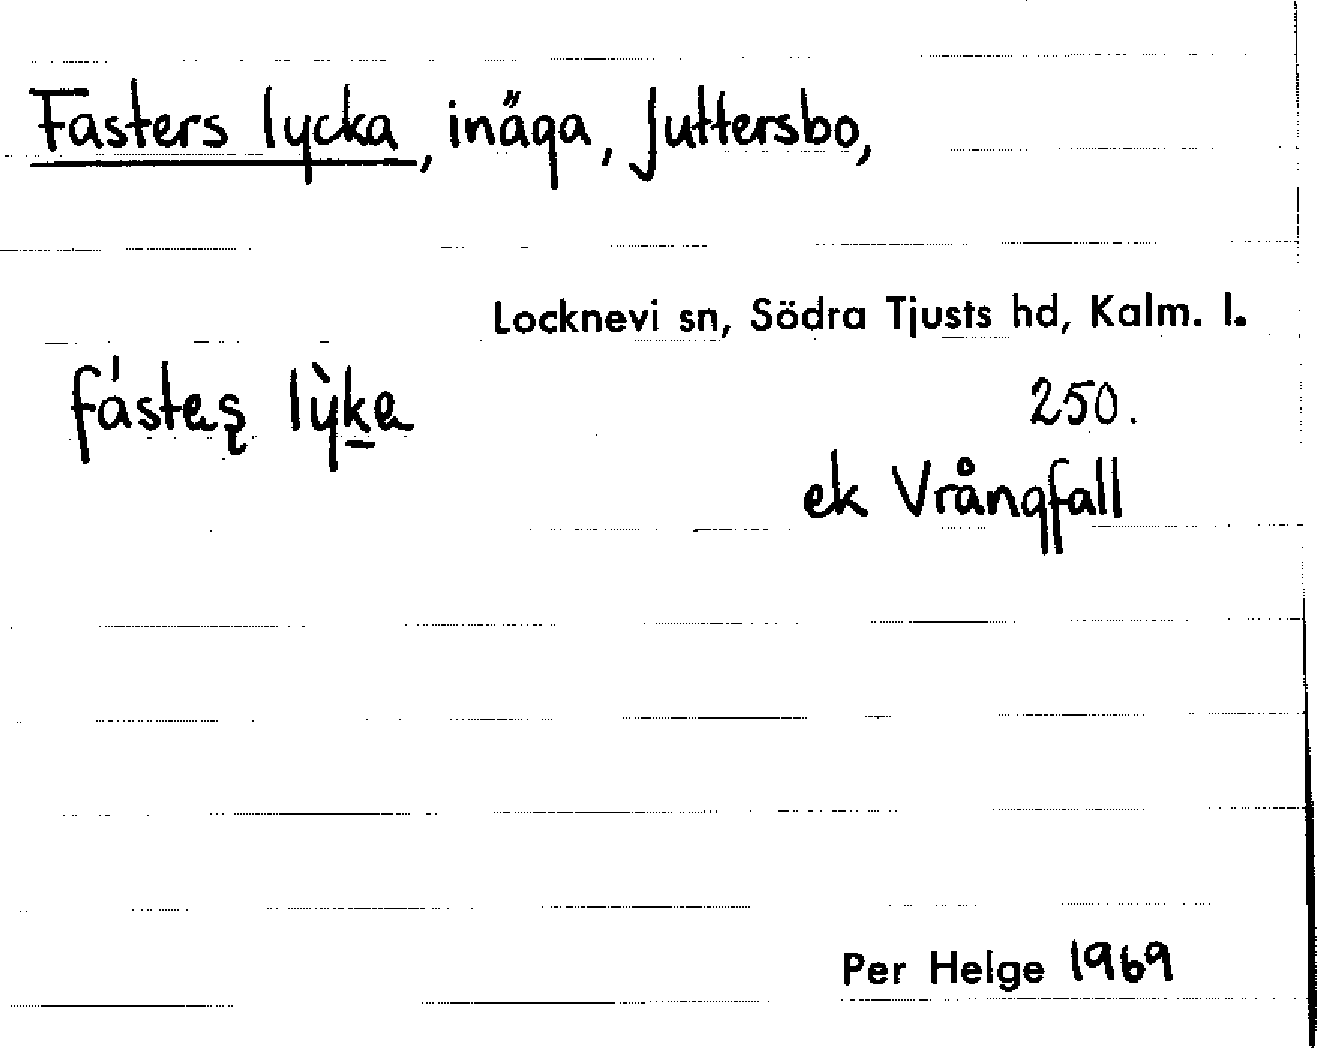 Fasters lycka, inäga, Juttersbo,
Locknevi sn, Södra Tjusts hd, Kalm. l.
250.
ek Vrångfall
Per Helge 1969